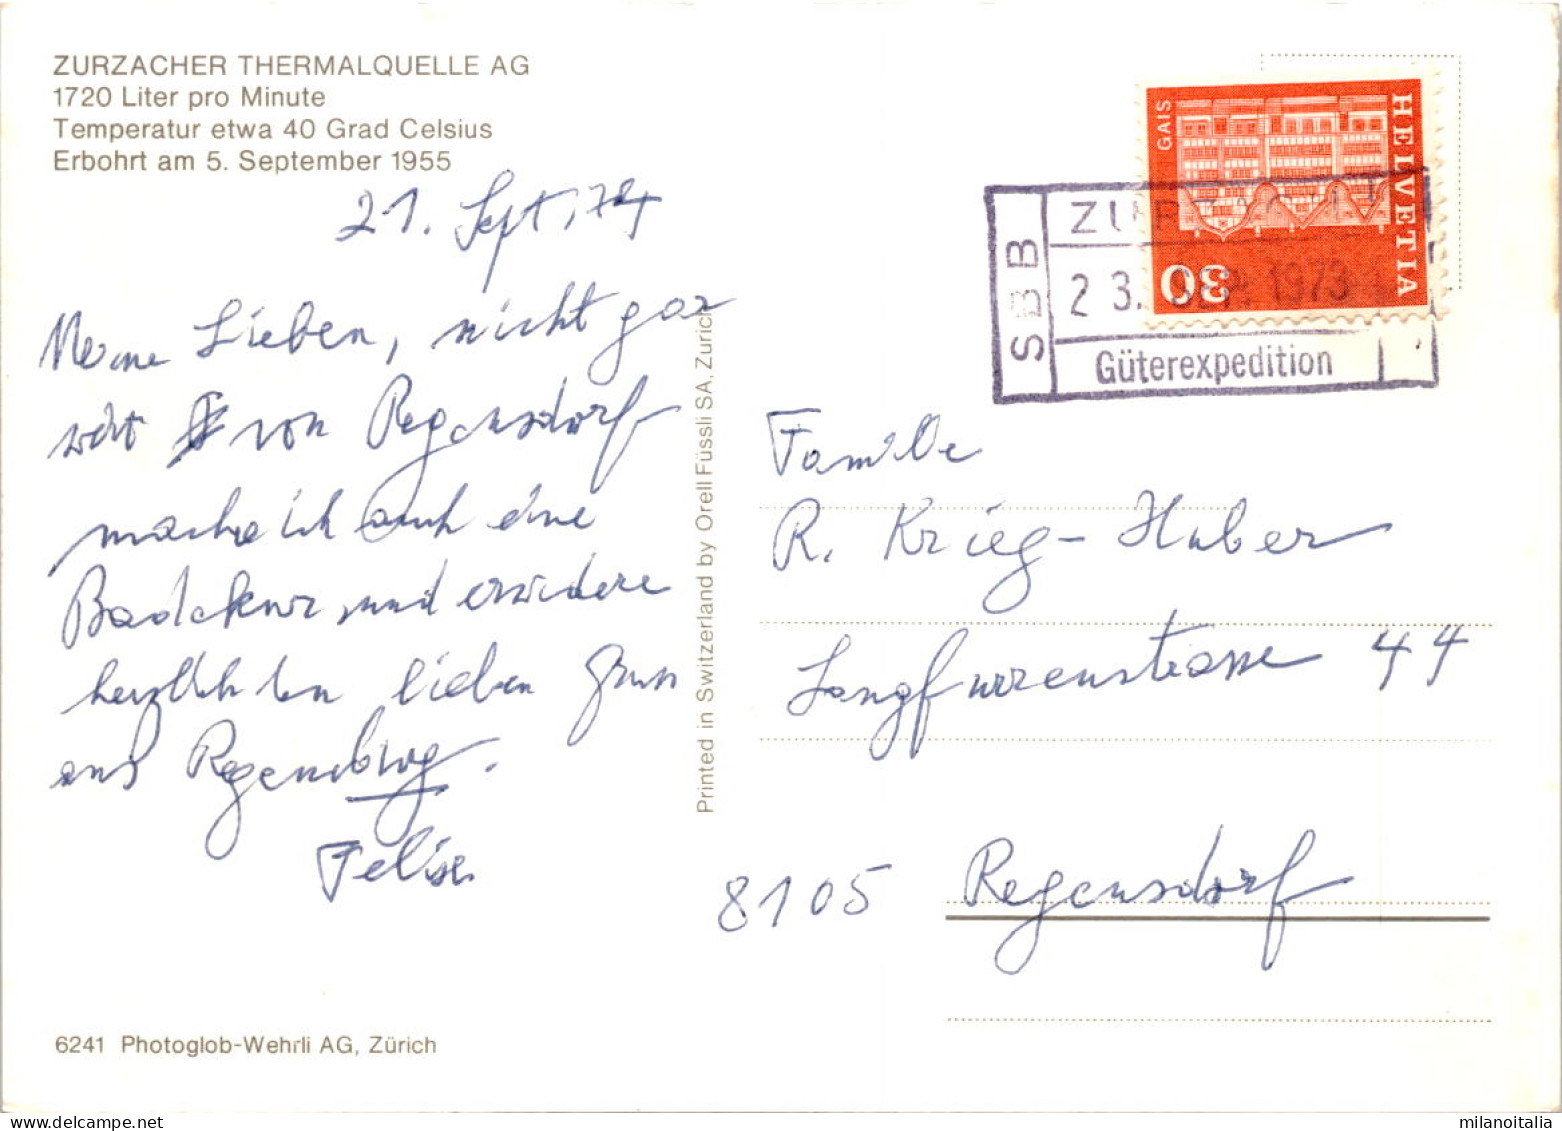 ZURZACHER THERMALQUELLE AG
1720 Liter pro Minute
Temperatur etwa 40 Grad Celsius
Erbohrt am 5. September 1955
21. Sept. 74
Meine Lieben, nicht gar
weit von Regensdorf
mache ich auch eine
Badekur und erwidere
herzlich den lieben Gruss
aus Regensburg.
Printed in Switzerland by Orell Füssli SA, Zurich
HELVETIA
GAIS
30
SBB
ZURZACH
23. SEP. 1973
Güterexpedition
Familie
R. Krieg-Huber
Langfurrenstrasse 44
8105 Regensdorf
6241 Photoglob-Wehrli AG, Zürich
milanoitalia